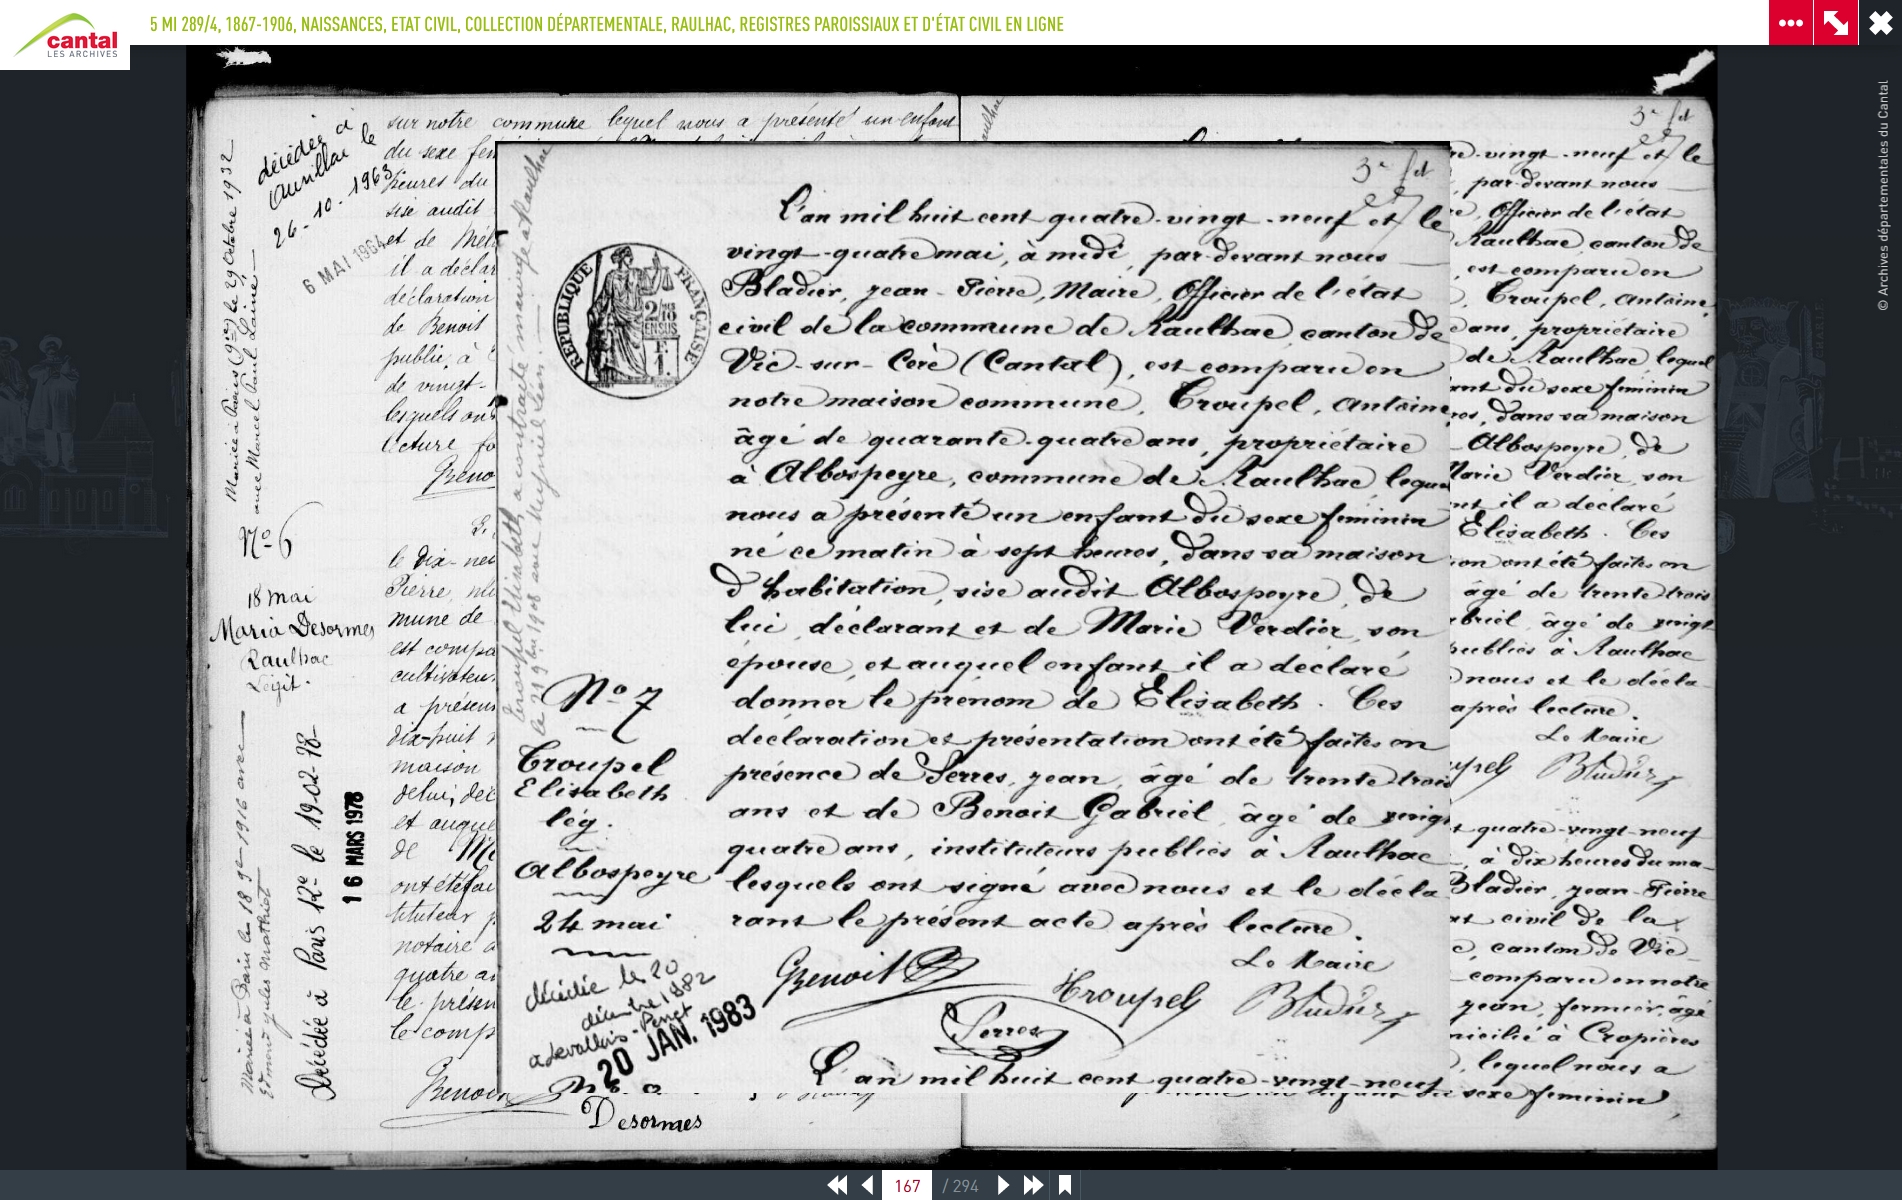 5 MI 289/4, 1867-1906, NAISSANCES, ETAT CIVIL, COLLECTION DÉPARTEMENTALE, RAULHAC, REGISTRES PAROISSIAUX ET D'ÉTAT CIVIL EN LIGNE
cantal
LES ARCHIVES
© Archives départementales du Cantal
sur notre commune lequel nous a présenté un enfant
du sexe
heures du
sise audit
et de
il a déclar
déclaration
de Benoit
public, à
de vingt-
lesquels ont
lecture
décédée à
Aurillac le
26-10-1963
6 MAI 1964
Mariée à Paris le 29 Octobre 1932
avec Marcel Paul Lainé
N° 6
18 mai
Maria Desormes
Raulhac
Légit.
Mariée à Paris le 18 1916 avec
Edmond Jules Mathiot
Décédée à Paris 12e le 19-02-78
16 MARS 1978
le dix-neu
Pierre,
mune de
est compa
cultivateur
a présen
dix-huit
maison
de lui, déc
et auque
de
ont été fai
tituteur
notaire a
quatre an
le présen
le comp
Desormes
3e fet
L'an mil huit cent quatre-vingt-neuf et le
vingt-quatre mai, à midi, par-devant nous
Bladier, Jean-Pierre, Maire, Officier de l'état
civil de la commune de Raulhac, canton de
Vic-sur-Cère (Cantal), est comparu en
notre maison commune, Troupel, Antoine
âgé de quarante-quatre ans, propriétaire
à Albospeyre, commune de Raulhac lequel
nous a présenté un enfant du sexe féminin
né ce matin à sept heures, dans sa maison
d'habitation, sise audit Albospeyre, de
lui déclarant et de Marie Verdier, son
épouse, et auquel enfant il a déclaré
donner le prénom de Elisabeth. Ces
déclaration et présentation ont été faites en
présence de Serres, Jean, âgé de trente-trois
ans et de Benoit Gabriel âgé de vingt
quatre ans, instituteurs publics à Raulhac
lesquels ont signé avec nous et le décla
rant le présent acte après lecture.
Le Maire
Benoit
Troupel
Bladier
Serres
L'an mil huit cent quatre-vingt-neuf
RÉPUBLIQUE FRANÇAISE
2/10
EN SUS
F.
1.
Troupel Elisabeth a contracté mariage à Raulhac
le 21 9bre 1908 avec
N° 7
Troupel
Elisabeth
lég.
Albospeyre
24 mai
décédée le 20
décembre 1982
à Levallois-Perret
20 JAN. 1983
3e fet
-vingt-neuf et le
par-devant nous
Officier de l'état
Raulhac canton de
est comparu en
Troupel, Antoine,
ans, propriétaire
de Raulhac lequel
ant du sexe féminin
dans sa maison
Albospeyre, de
Marie Verdier, son
il a déclaré
Elisabeth. Ces
ont été faites en
âgé de trente-trois
âgé de vingt
publics à Raulhac
nous et le décla-
après lecture.
Le Maire
Bladier
quatre-vingt-neuf
à dix heures du ma-
Bladier, Jean-Pierre
civil de la
canton de Vic-
comparu en notre
Jean, fermier, âgé
à Cropières
lequel nous a
sexe féminin
167
/ 294